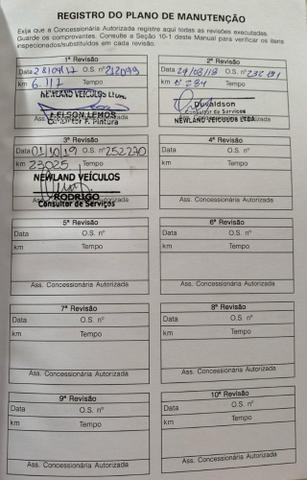 REGISTRO DO PLANO DE MANUTENÇÃO
Exija que a Concessionária Autorizada registre aqui todas as revisões executadas.
Guarde os comprovantes. Consulte a Seção 10-1 deste Manual para verificar os itens
inspecionados/substituídos em cada revisão.
1ª Revisão
Data 28/09/17 O.S. nº 212099
km 6.117 Tempo
NEWLAND VEÍCULOS Ltda.
NELSON LEMOS
Pintura
2ª Revisão
Data O.S. nº
km Tempo
Donaldson
Consultor de Servicos
NEWLAND VEICULOS LTDA
3ª Revisão
Data 01/10/19 O.S. nº 252270
km 23025 Tempo
NEWLAND VEÍCULOS
RODRIGO
Consultor de Serviços
4ª Revisão
Data O.S. nº
km Tempo
Ass. Concessionária Autorizada
5ª Revisão
Data O.S. nº
km Tempo
Ass. Concessionária Autorizada
6ª Revisão
Data O.S. nº
km Tempo
Ass. Concessionária Autorizada
7ª Revisão
Data O.S. nº
km Tempo
Ass. Concessionária Autorizada
8ª Revisão
Data O.S. nº
km Tempo
Ass. Concessionária Autorizada
9ª Revisão
Data O.S. nº
km Tempo
Ass. Concessionária Autorizada
10ª Revisão
Data O.S. nº
km Tempo
Ass. Concessionária Autorizada